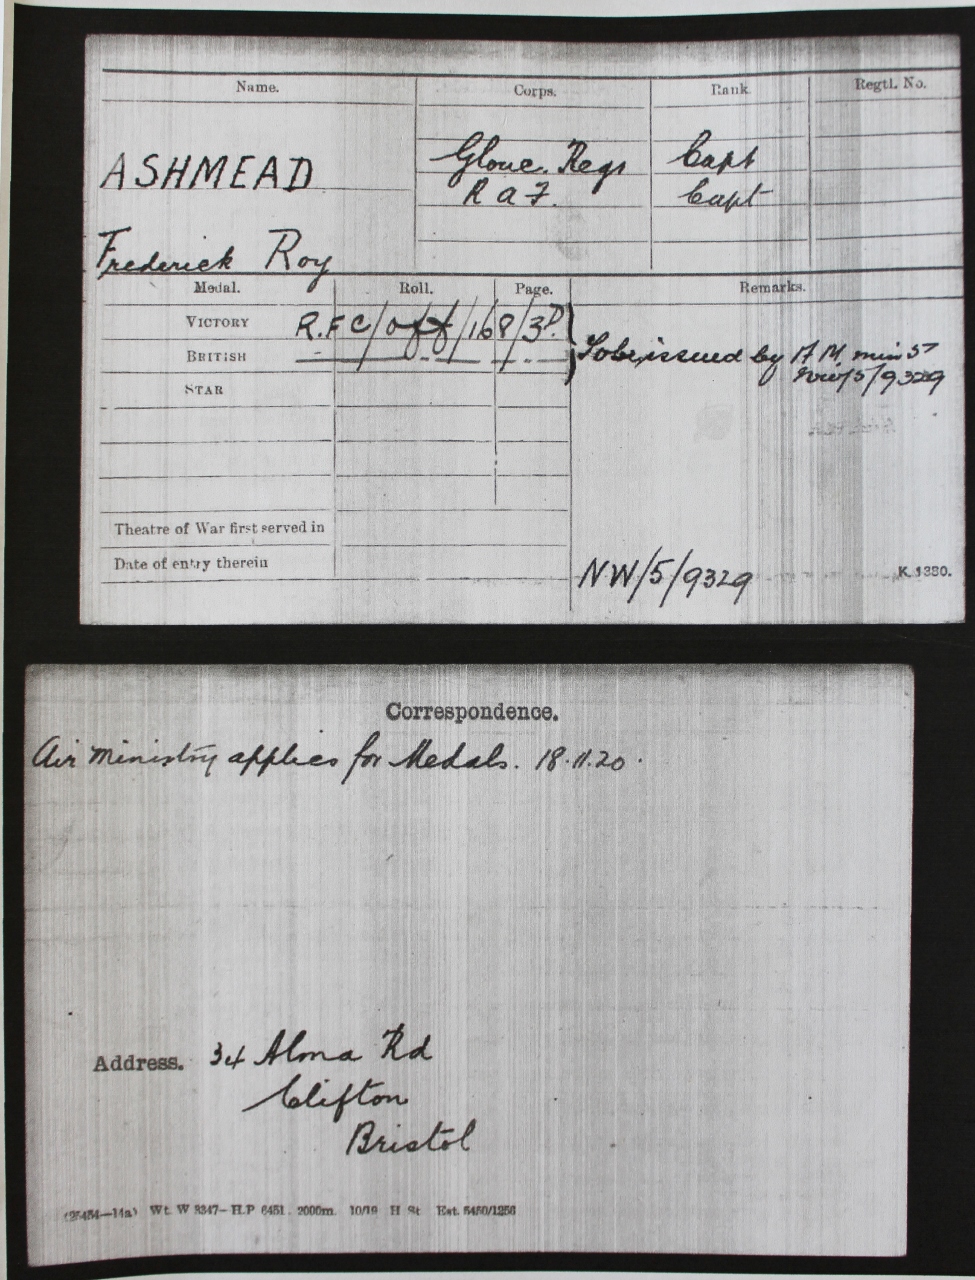 Name. Corps. Rank Regtl. No.
ASHMEAD Glouc. Regt Capt
R a F. Capt
Frederick Roy
Medal. Roll. Page. Remarks.
VICTORY R.F.C/Off/168/3D.
BRITISH To be issued by A M. min 5
NW/5/9329
STAR
Theatre of War first served in
Date of entry therein
NW/5/9329 K. 1380.
Correspondence.
Air Ministry applies for Medals. 18.11.20.
Address. 34 Alma Rd
Clifton
Bristol
Wt. W 8347—H.P 6451. 2000m. 10/19 H St Est.